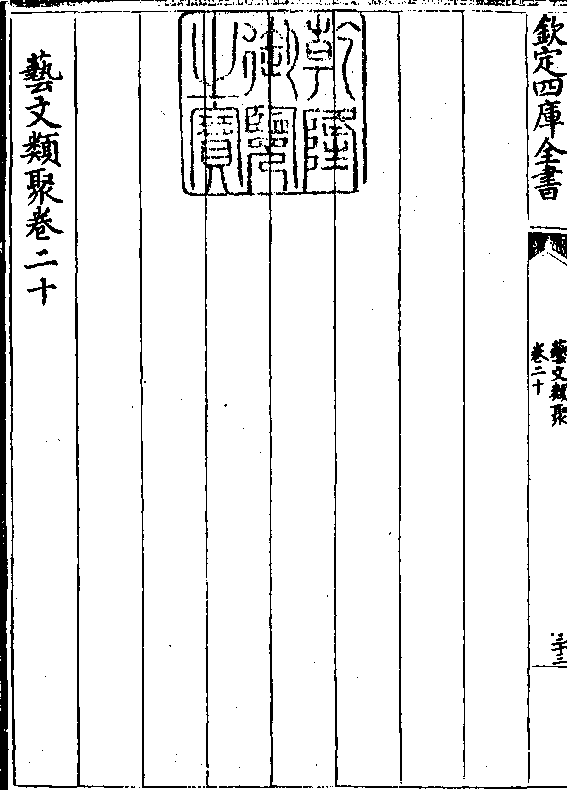 欽定四庫全書
藝文類聚
卷二十
三十三
乾隆
御覽
之寶
藝文類聚卷二十